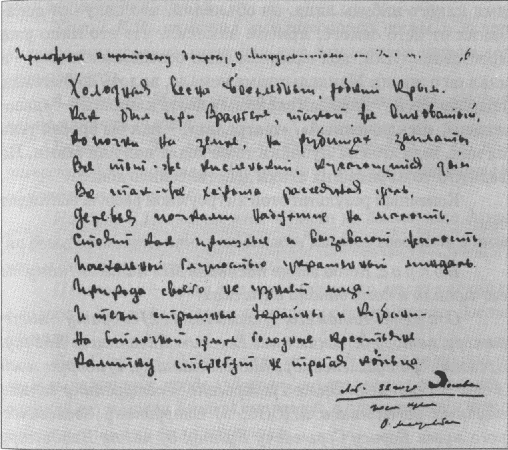 Приложение к протоколу допроса О. Мандельштама от
Холодная весна. Бесхлебный, робкий Крым.
Как был при Врангеле, такой же виноватый,
Комочки на земле, на рубищах заплаты
Все тот-же кисленький, кусающийся дым
Все так-же хороша рассеянная даль.
Деревья почками набухшие на малость,
Стоят как пришлые и вызывает жалость,
Пасхальной глупостью украшенный миндаль.
Природа своего не узнает лица.
И тени страшные Украйны и Кубани -
На войлочной земле голодные крестьяне
Калитку стерегут не трогая кольца.
О. Мандельштам